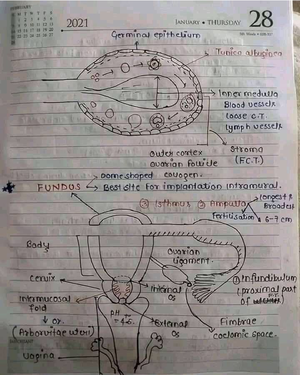 2021
JANUARY • THURSDAY 28
Germinal epithelium
Tunica albuginea
Inner medulla
Blood vessels
loose C.T.
lymph vessels
Stroma
(F.C.T.)
Outer cortex
ovarian follicle
Dome shaped
FUNDUS → Best site for implantation intramural.
② Isthmus ③ Ampulla
longest &
Broadest
Fertilisation
6-7 cm
Body
Ovarian
ligament.
Cervix
Internal
os
① Infundibulum
(proximal part
of
Intermucosal
fold
↓ or
(Arborvitae uteri)
PH
External
os
Fimbrae
coelomic space.
Vagina